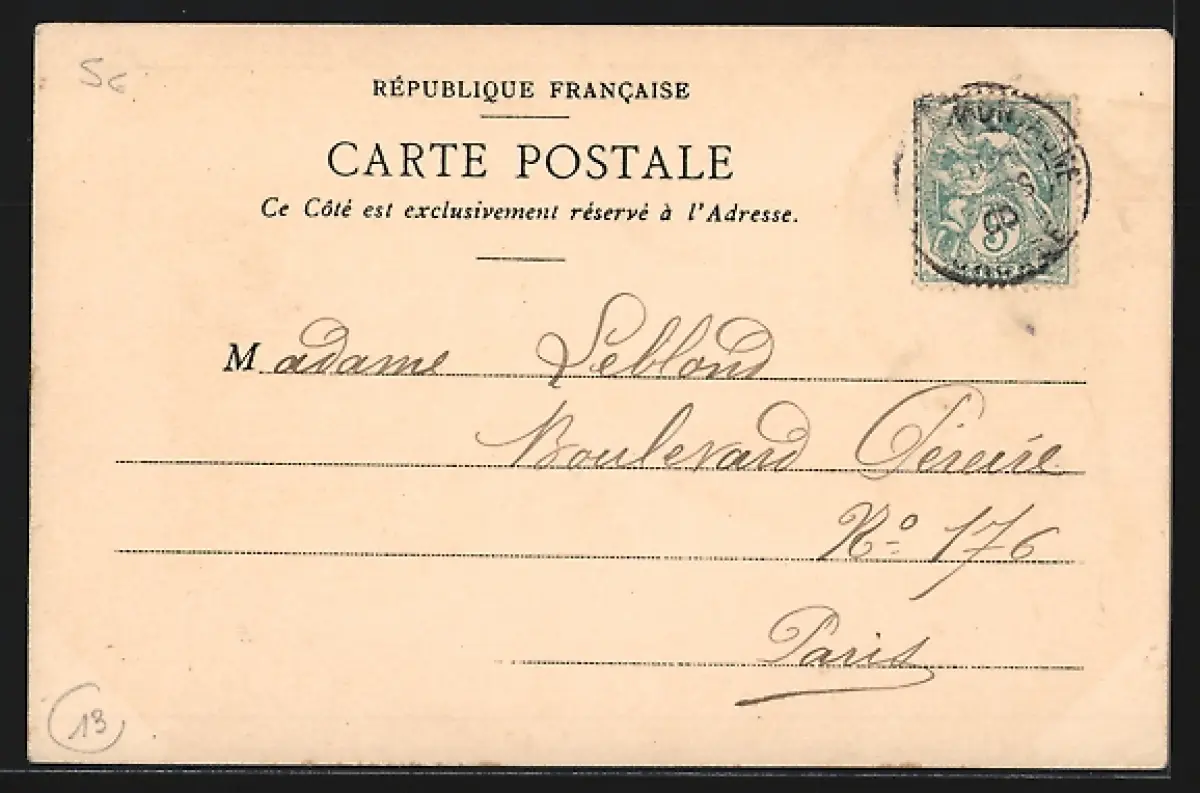 56
RÉPUBLIQUE FRANÇAISE
CARTE POSTALE
Ce Côté est exclusivement réservé à l'Adresse.
5
Madame Leblond
Boulevard Péreire
No 176
Paris
13